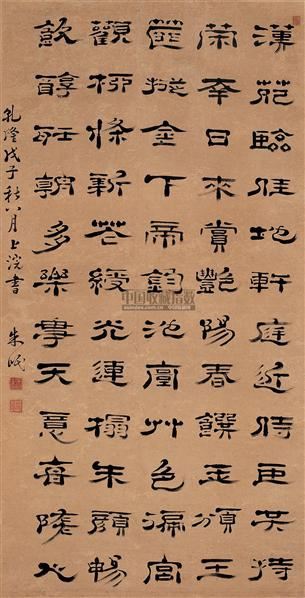 漢苑臨佳地軒庭近侍臣共持
榮幸日來賞豔陽春饌玉頒王
篚摐金下帝鈞池臺艸色遍宮
觀柳條新花綬光連榻朱顏暢
飲醇朝多樂事天意每隨人
乾隆戊子秋八月上浣書
朱岷
中国收藏指数